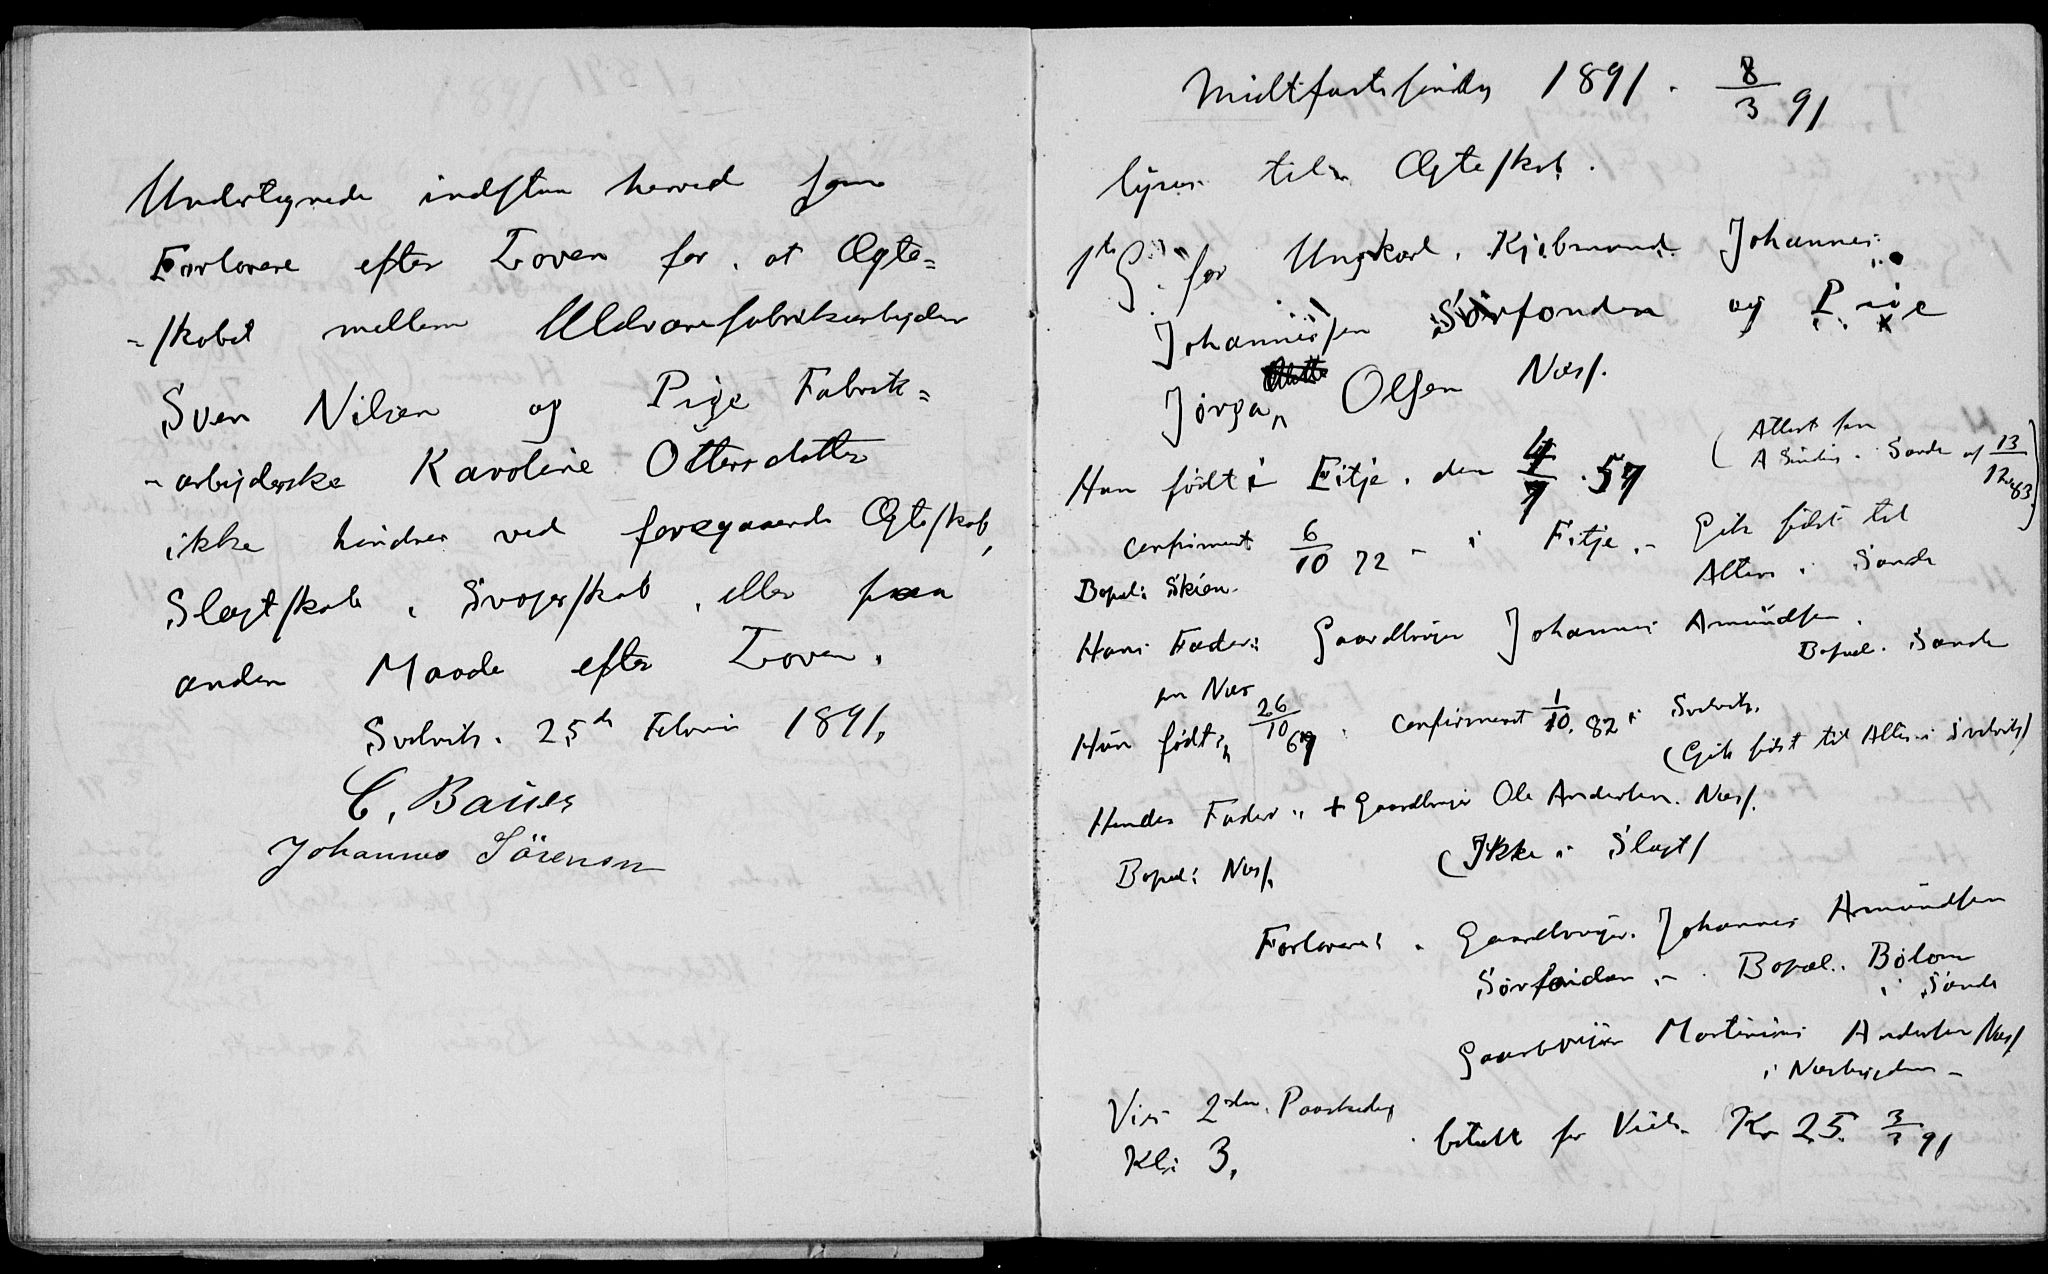 Undertegnede indestaa herved som
Forlovere efter Loven for, at Ægte=
-skabet mellem Uldvarefabriksarbeider
Sven Nilsen og Pige Fabrik=
-arbejderske Karoline Ottersdatter
ikke hindres ved foregaaende Ægteskab,
Slægtskab, Svogerskab, eller paa
anden Maade efter Loven.
Svelvik. 25de Februar 1891.
C. Bauer
Johannes Sörensen
Midtfastesøndag 1891. 8/3 91
lyses til Ægteskab.
1ste G. for Ungkarl, Kjøbmand Johannes
Johannessen Sørfonden og Pige
Jørga Olsen Næss.
Han født i Fitje, den 4/7 57
(Attest fra
Sande af 13/12 83)
confirmeret 6/10 72 - i Fitje. - Gik sidst til
Bopæl: Skien. Alters i Sande
Hans Fader: Gaardbruger Johannes Amundsen.
Bopæl. Sande
Hun født 26/10 67. confirmeret 1/10. 82 i Svelvik.
(Gik sidst til Alters i Svelvik)
Hendes Fader: + Gaardbruger Ole Andersen. Næss.
Bopæl: Næss. (Ikke i Slægt)
Forlovere: Gaardbruger Johannes Amundsen
Sørfonden - Bopæl. Bolom
i Sande
Gaardbruger Martinius Andersen Næss
i Næsbygden -
Vies 2den Paaskedag
Kl: 3. betalt for Viels. Kr 25. 3/3 91